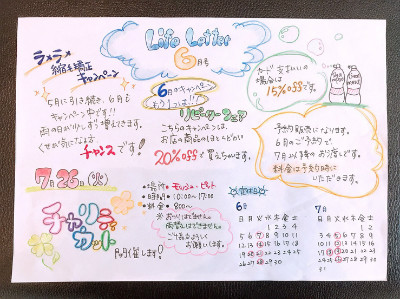 Life Letter
6月号
ラメラメ
縮毛矯正
キャンペーン
5月に引き続き、6月も
キャンペーン中です!!
雨の日が少しずつ増えてきます。
くせが気になる方
チャンスです!
6月のキャンペーン
もう1つは!!
リピーターフェア
こちらのキャンペーンは、
お店の商品のしなものがい
20%offで買えちゃいます。
カード支払いの
場合は
15%offです。
予約販売になります。
6月のご予約で
7月以降のお引渡しです。
料金は予約時に
いただきます。
7月26日(火)
チャリティ
カット
開催します!
時間 10:00〜17:00
料金 800〜
お願いします。
定休日
6月
日月火水木金土
1 2 3 4
5 6 7 8 9 10 11
12 13 14 15 16 17 18
19 20 21 22 23 24 25
26 27 28 29 30
7月
日月火水木金土
1 2
3 4 5 6 7 8 9
10 11 12 13 14 15 16
17 18 19 20 21 22 23
24 25 26 27 28 29 30
31